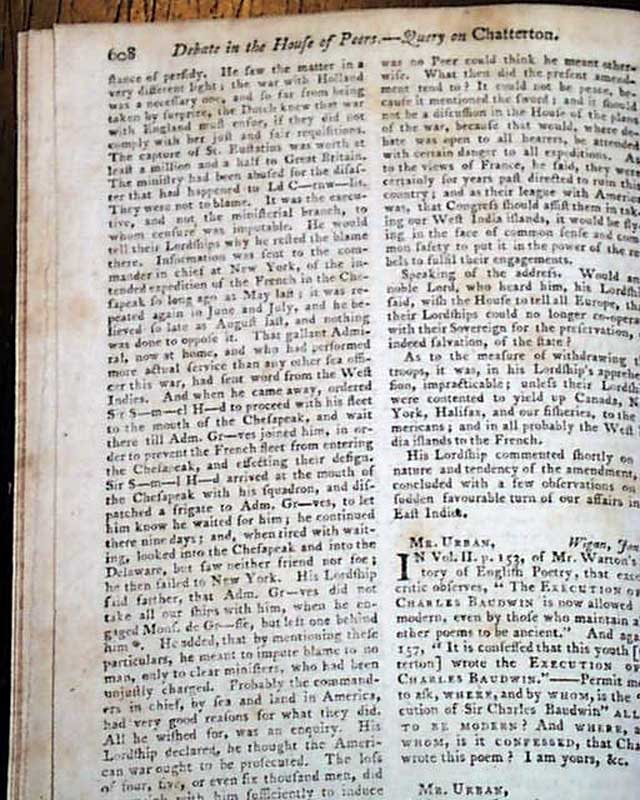 608 Debate in the House of Peers.—Query on Chatterton.
stance of perfidy. He saw the matter in a
very different light; the war with Holland
was a necessary one, and so far from being
taken by surprize, the Dutch knew that war
with England must ensue, if they did not
comply with her just and fair requisitions.
The capture of St. Eustatius was worth at
least a million and a half to Great Britain.
The ministry had been abused for the disas-
ter that had happened to Ld C—rnw—lis.
They were not to blame. It was the execu-
tive, and not the ministerial branch, to
whom censure was imputable. He would
tell their Lordships why he rested the blame
there. Information was sent to the com-
mander in chief at New York, of the in-
tended expedition of the French in the Che-
sapeak so long ago as May last; it was re-
peated again in June and July, and he be-
lieved so late as August last, and nothing
was done to oppose it. That gallant Admi-
ral, now at home, and who had performed
more actual service than any other sea offi-
cer this war, had sent word from the West
Indies. And when he came away, ordered
Sir S—m—el H—d to proceed with his fleet
to the mouth of the Chesapeak, and wait
there till Adm. Gr—ves joined him, in or-
der to prevent the French fleet from entering
the Chesapeak, and effecting their design.
Sir S—m—l H—d arrived at the mouth of
the Chesapeak with his squadron, and dis-
patched a frigate to Adm. Gr—ves, to let
him know he waited for him; he continued
there nine days; and, when tired with wait-
ing, looked into the Chesapeak and into the
Delaware, but saw neither friend nor foe;
he then sailed to New York. His Lordship
said farther, that Adm. Gr—ves did not
take all our ships with him, when he en-
gaged Mons. de Gr—sse, but left one behind
him *. He added, that by mentioning these
particulars, he meant to impute blame to no
man, only to clear ministers, who had been
unjustly charged. Probably the command-
ers in chief, by sea and land in America,
had very good reasons for what they did.
All he wished for, was an enquiry. His
Lordship declared, he thought the Ameri-
can war ought to be prosecuted. The loss
of four, five, or even six thousand men, did
weigh with him sufficiently to induce
was no Peer could think he meant other-
wise. What then did the present amend-
ment tend to? It could not be peace, be-
cause it mentioned the sword; and it should
not be a discussion in the House of the plans
of the war, because that would, where de-
bate was open to all hearers, be attended
with certain danger to all expeditions. As
to the views of France, he said, they were
certainly for years past directed to ruin this
country; and as their league with America
was, that Congress should assist them in tak-
ing our West India islands, it would be fly-
ing in the face of common sense and com-
mon safety to put it in the power of the re-
bels to fulfil their engagements.
Speaking of the address. Would any
noble Lord, who heard him, his Lordship
said, wish the House to tell all Europe, that
their Lordships could no longer co-operate
with their Sovereign for the preservation,
indeed salvation, of the state?
As to the measure of withdrawing
troops, it was, in his Lordship's apprehen-
sion, impracticable; unless their Lordships
were contented to yield up Canada, New
York, Halifax, and our fisheries, to the A-
mericans; and in all probability the West In-
dia islands to the French.
His Lordship commented shortly on
nature and tendency of the amendment,
concluded with a few observations on
sudden favourable turn of our affairs in
East Indies.
MR. URBAN, Wigan, Jan.
IN Vol. II. p. 153, of Mr. Warton's
tory of English Poetry, that
critic observes, “ The EXECUTION OF
CHARLES BAUDWIN is now allowed
modern, even by those who maintain all
other poems to be ancient.” And again
157, “ It is confessed that this youth [
terton] wrote the EXECUTION OF
CHARLES BAUDWIN.”——Permit me
to ask, WHERE, and by WHOM, is the
cution of Sir Charles Baudwin” ALL
TO BE MODERN? And WHERE, and
WHOM, is it CONFESSED, that Cha
wrote this poem? I am yours, &c.
MR. URBAN,